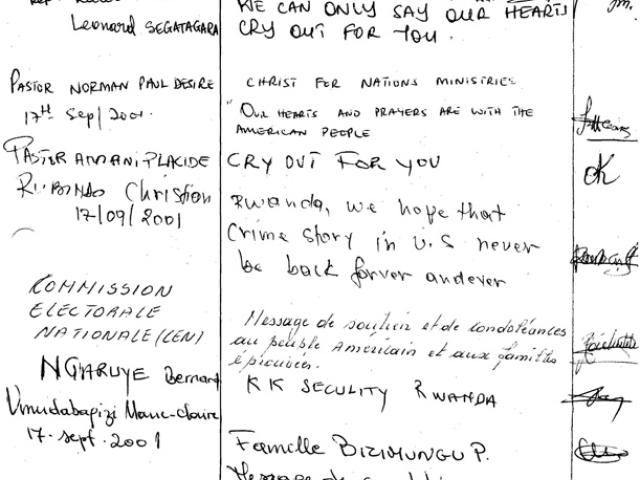 WE CAN ONLY SAY OUR HEARTS
Leonard SEGATAGARA
CRY OUT FOR YOU.
PASTOR NORMAN PAUL DESIRE
CHRIST FOR NATIONS MINISTRIES
17th Sep/2001.
"OUR HEARTS AND PRAYERS ARE WITH THE
AMERICAN PEOPLE
PASTER AMANI PLACIDE
CRY OUT FOR YOU
OK
Christian
17/09/2001
Rwanda, we hope that
Crime story in U.S never
be back forver andever
COMMISSION
ELECTORALE
NATIONALE (CEN)
Message de soutien et de condoléances
au peuple Américain et aux familles
éprouvées.
NGARUYE Bernard
KK SECULITY RWANDA
Umudabagizi Marie-Claire
17-sept-2001
Famille BIZIMUNGU P.
Message de